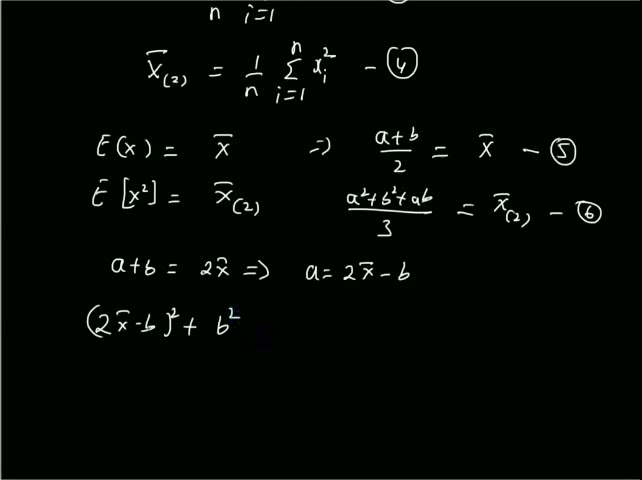 n i=1
X̄₍₂₎ = 1/n Σ_{i=1}^{n} x_i² - ④
E(x) = x̄ => (a+b)/2 = x̄ - ⑤
E[x²] = x̄₍₂₎ (a²+b²+ab)/3 = x̄₍₂₎ - ⑥
a+b = 2x̄ => a = 2x̄ - b
(2x̄-b)² + b²